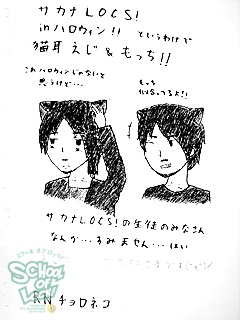 サカナLOCS!
inハロウィン!! というわけで
猫耳えじ&もっち!!
これハロウィンじゃないと
思うけど…
もっち
似合ってるよ!!
サカナLOCS!の生徒のみなさん
なんか…すみません…はい
スクール オブ ロック!
SCHOOL OF LOCK!
RN チョロネコ